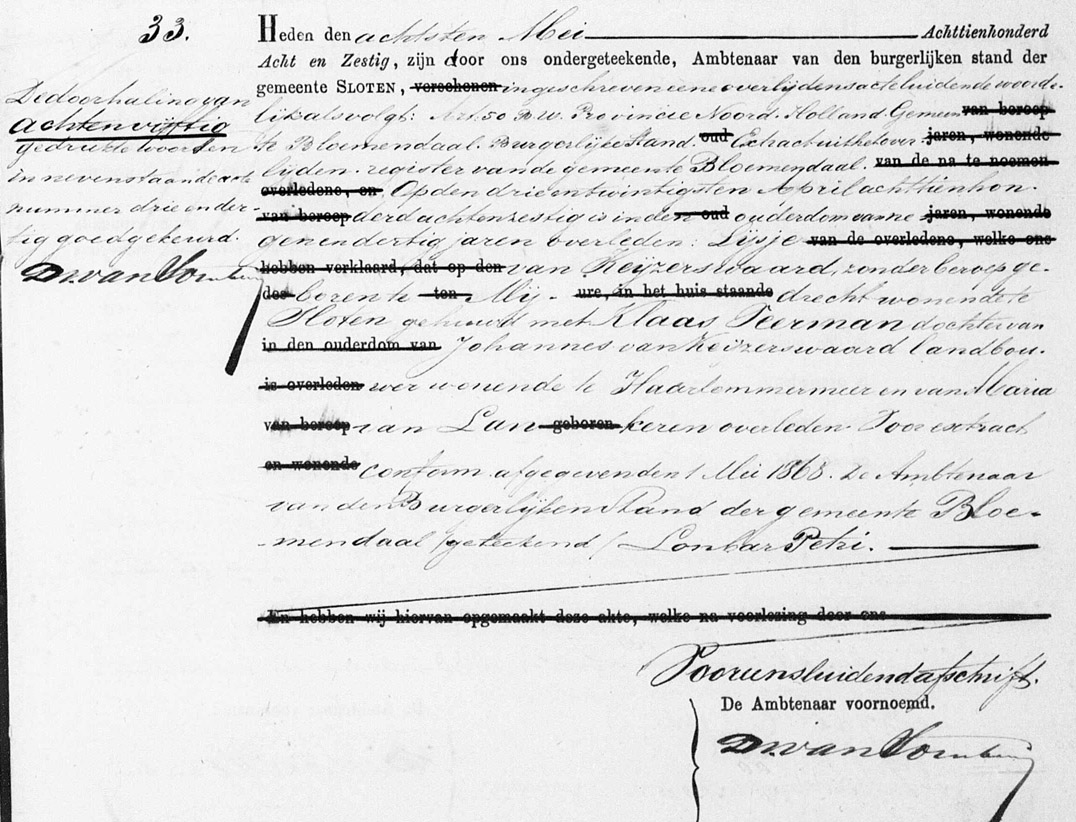 33.
De doorhaling van
achtenvijftig
gedrukte woorden
in nevenstaande acte
nummer drie en der-
tig goedgekeurd.
D. van
Heden den achtsten Mei Achttienhonderd
Acht en Zestig, zijn door ons ondergeteekende, Ambtenaar van den burgerlijken stand der
gemeente SLOTEN, verschenen ingeschreven eene overlijdensacte luidende woorde-
lijk als volgt: Art. 50 B.W. Provincie Noord-Holland Gemeen- van beroep
te Bloemendaal. Burgerlijke Stand. oud Extract uit het over- jaren, wonende
lijden-register van de gemeente Bloemendaal. van de na te noemen
overledene, en Op den drie en twintigsten April achttienhon-
van beroep derd acht en zestig is in den oud ouderdom van ne- jaren, wonende
gen en dertig jaren overleden: Lijsje van de overledene, welke ons
hebben verklaard, dat op den van Keijzerswaard, zonder beroep ge-
des boren te ten Mij- ure, in het huis staande drecht wonende te
Sloten gehuwd met Klaas Peerman dochter van
in den ouderdom van Johannes van Keijzerswaard landbou-
is overleden wer wonende te Haarlemmermeer en van Maria
van beroep van Lun- geboren keren overleden. Voor extract
en wonende conform afgegeven den 1 Mei 1868. De Ambtenaar
van den Burgerlijken Stand der gemeente Bloe-
mendaal /geteekend/ Petri.
En hebben wij hiervan opgemaakt deze akte, welke na voorlezing door ons
Voor eensluidend afschrift.
De Ambtenaar voornoemd.
D. van